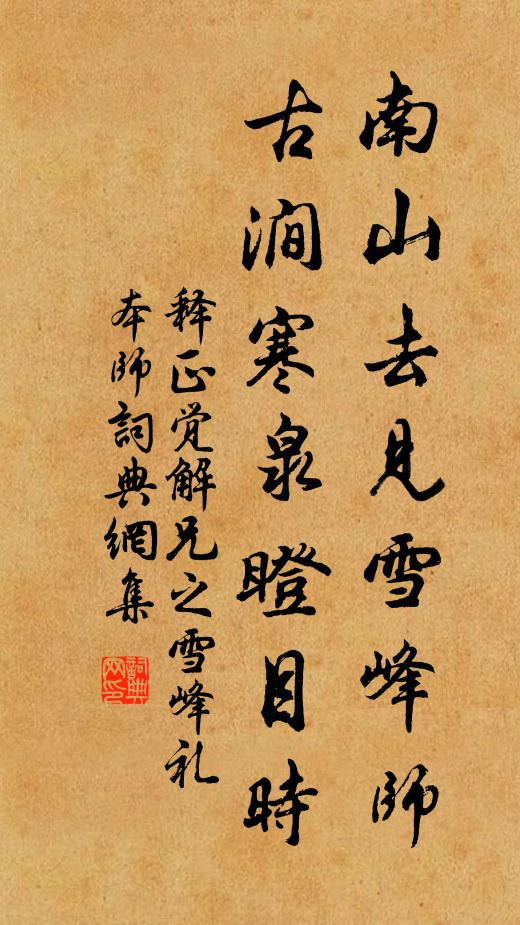 南山去見雪峰師
古澗寒泉瞪目時
释正覚解兄之雪峰礼
本師詞典網集
詞典
网印